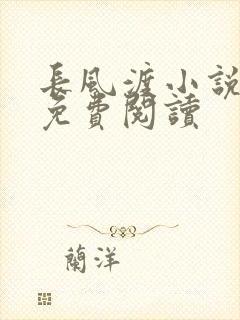 長風渡小說
免費閱讀
蘭洋